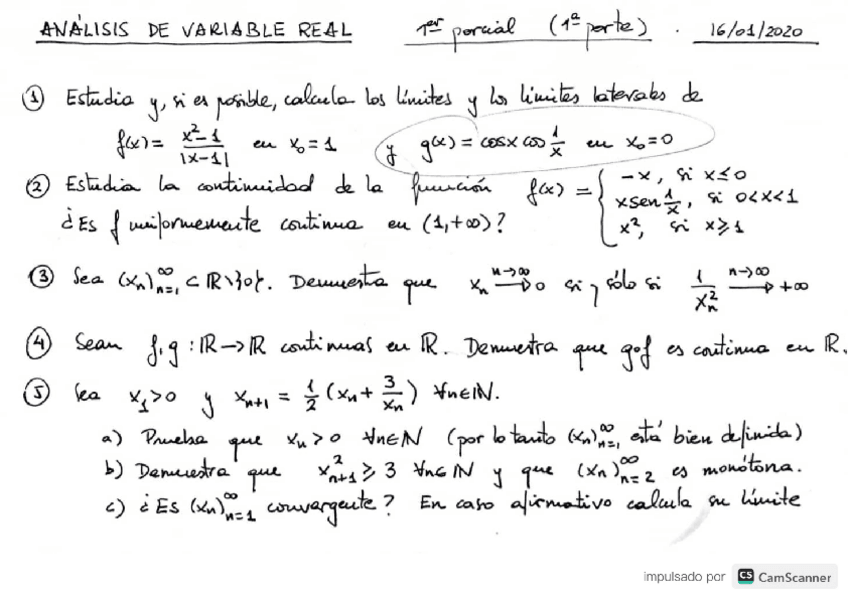 ANÁLISIS DE VARIABLE REAL 1er parcial (1ª parte). 16/01/2020
① Estudia y, si es posible, calcula los límites y los límites laterales de
f(x) = (x²-1)/|x-1| en x₀=1 y g(x) = cosx cos 1/x en x₀=0
② Estudia la continuidad de la función f(x) = { -x, si x≤0
xsen 1/x, si 0<x<1
¿Es f uniformemente continua en (1,+∞)? x², si x≥1
③ Sea (xₙ)ₙ₌₁^∞ ⊂ ℝ\{0}. Demuestra que xₙ →(n→∞) 0 si y sólo si 1/xₙ² →(n→∞) +∞
④ Sean f,g : ℝ→ℝ continuas en ℝ. Demuestra que g∘f es continua en ℝ.
⑤ Sea x₁>0 y xₙ₊₁ = 1/2 (xₙ + 3/xₙ) ∀n∈ℕ.
a) Prueba que xₙ>0 ∀n∈ℕ (por lo tanto (xₙ)ₙ₌₁^∞ está bien definida)
b) Demuestra que xₙ₊₁² ≥ 3 ∀n∈ℕ y que (xₙ)ₙ₌₂^∞ es monótona.
c) ¿Es (xₙ)ₙ₌₁^∞ convergente? En caso afirmativo calcula su límite
impulsado por CS CamScanner